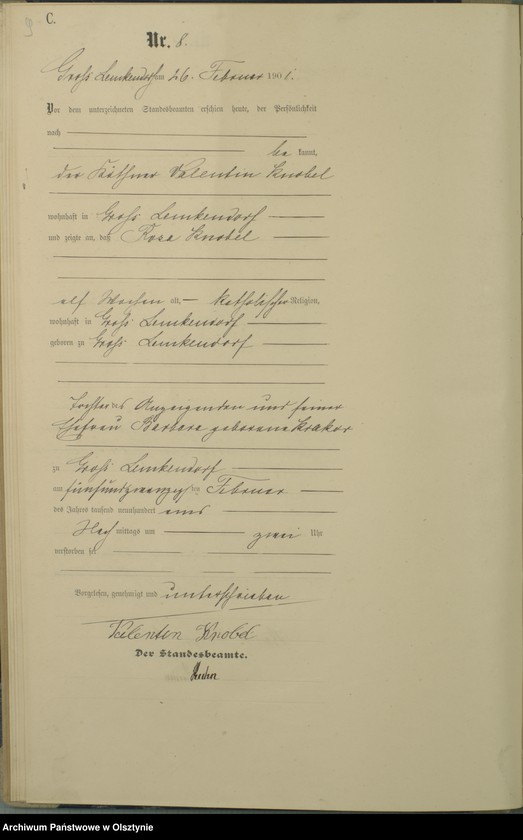 C.
Nr. 8.
Groß Lemkendorf am 26. Februar 1901.
Vor dem unterzeichneten Standesbeamten erschien heute, der Persönlichkeit
nach
be kannt,
der Käthner Valentin Knobel
wohnhaft in Groß Lemkendorf
und zeigte an, daß Rosa Knobel
elf Wochen alt, katholischer Religion,
wohnhaft in Groß Lemkendorf
geboren zu Groß Lemkendorf
Tochter des Anzeigenden und seiner
Ehefrau Barbara geborene Krakor
zu Groß Lemkendorf
am fünfundzwanzigsten Februar
des Jahres tausend neunhundert eins
Nach mittags um zwei Uhr
verstorben sei
Vorgelesen, genehmigt und unterschrieben
Valentin Knobel
Der Standesbeamte.
Archiwum Państwowe w Olsztynie